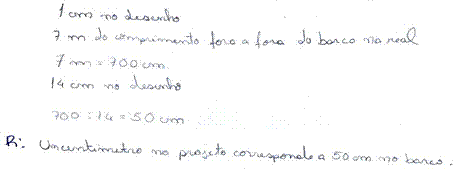 1 cm no desenho
7 m do comprimento fora a fora do barco na real
7 m = 700 cm
14 cm no desenho
700 : 14 = 50 cm
R: Um centimetro no projeto corresponde a 50 cm no barco.